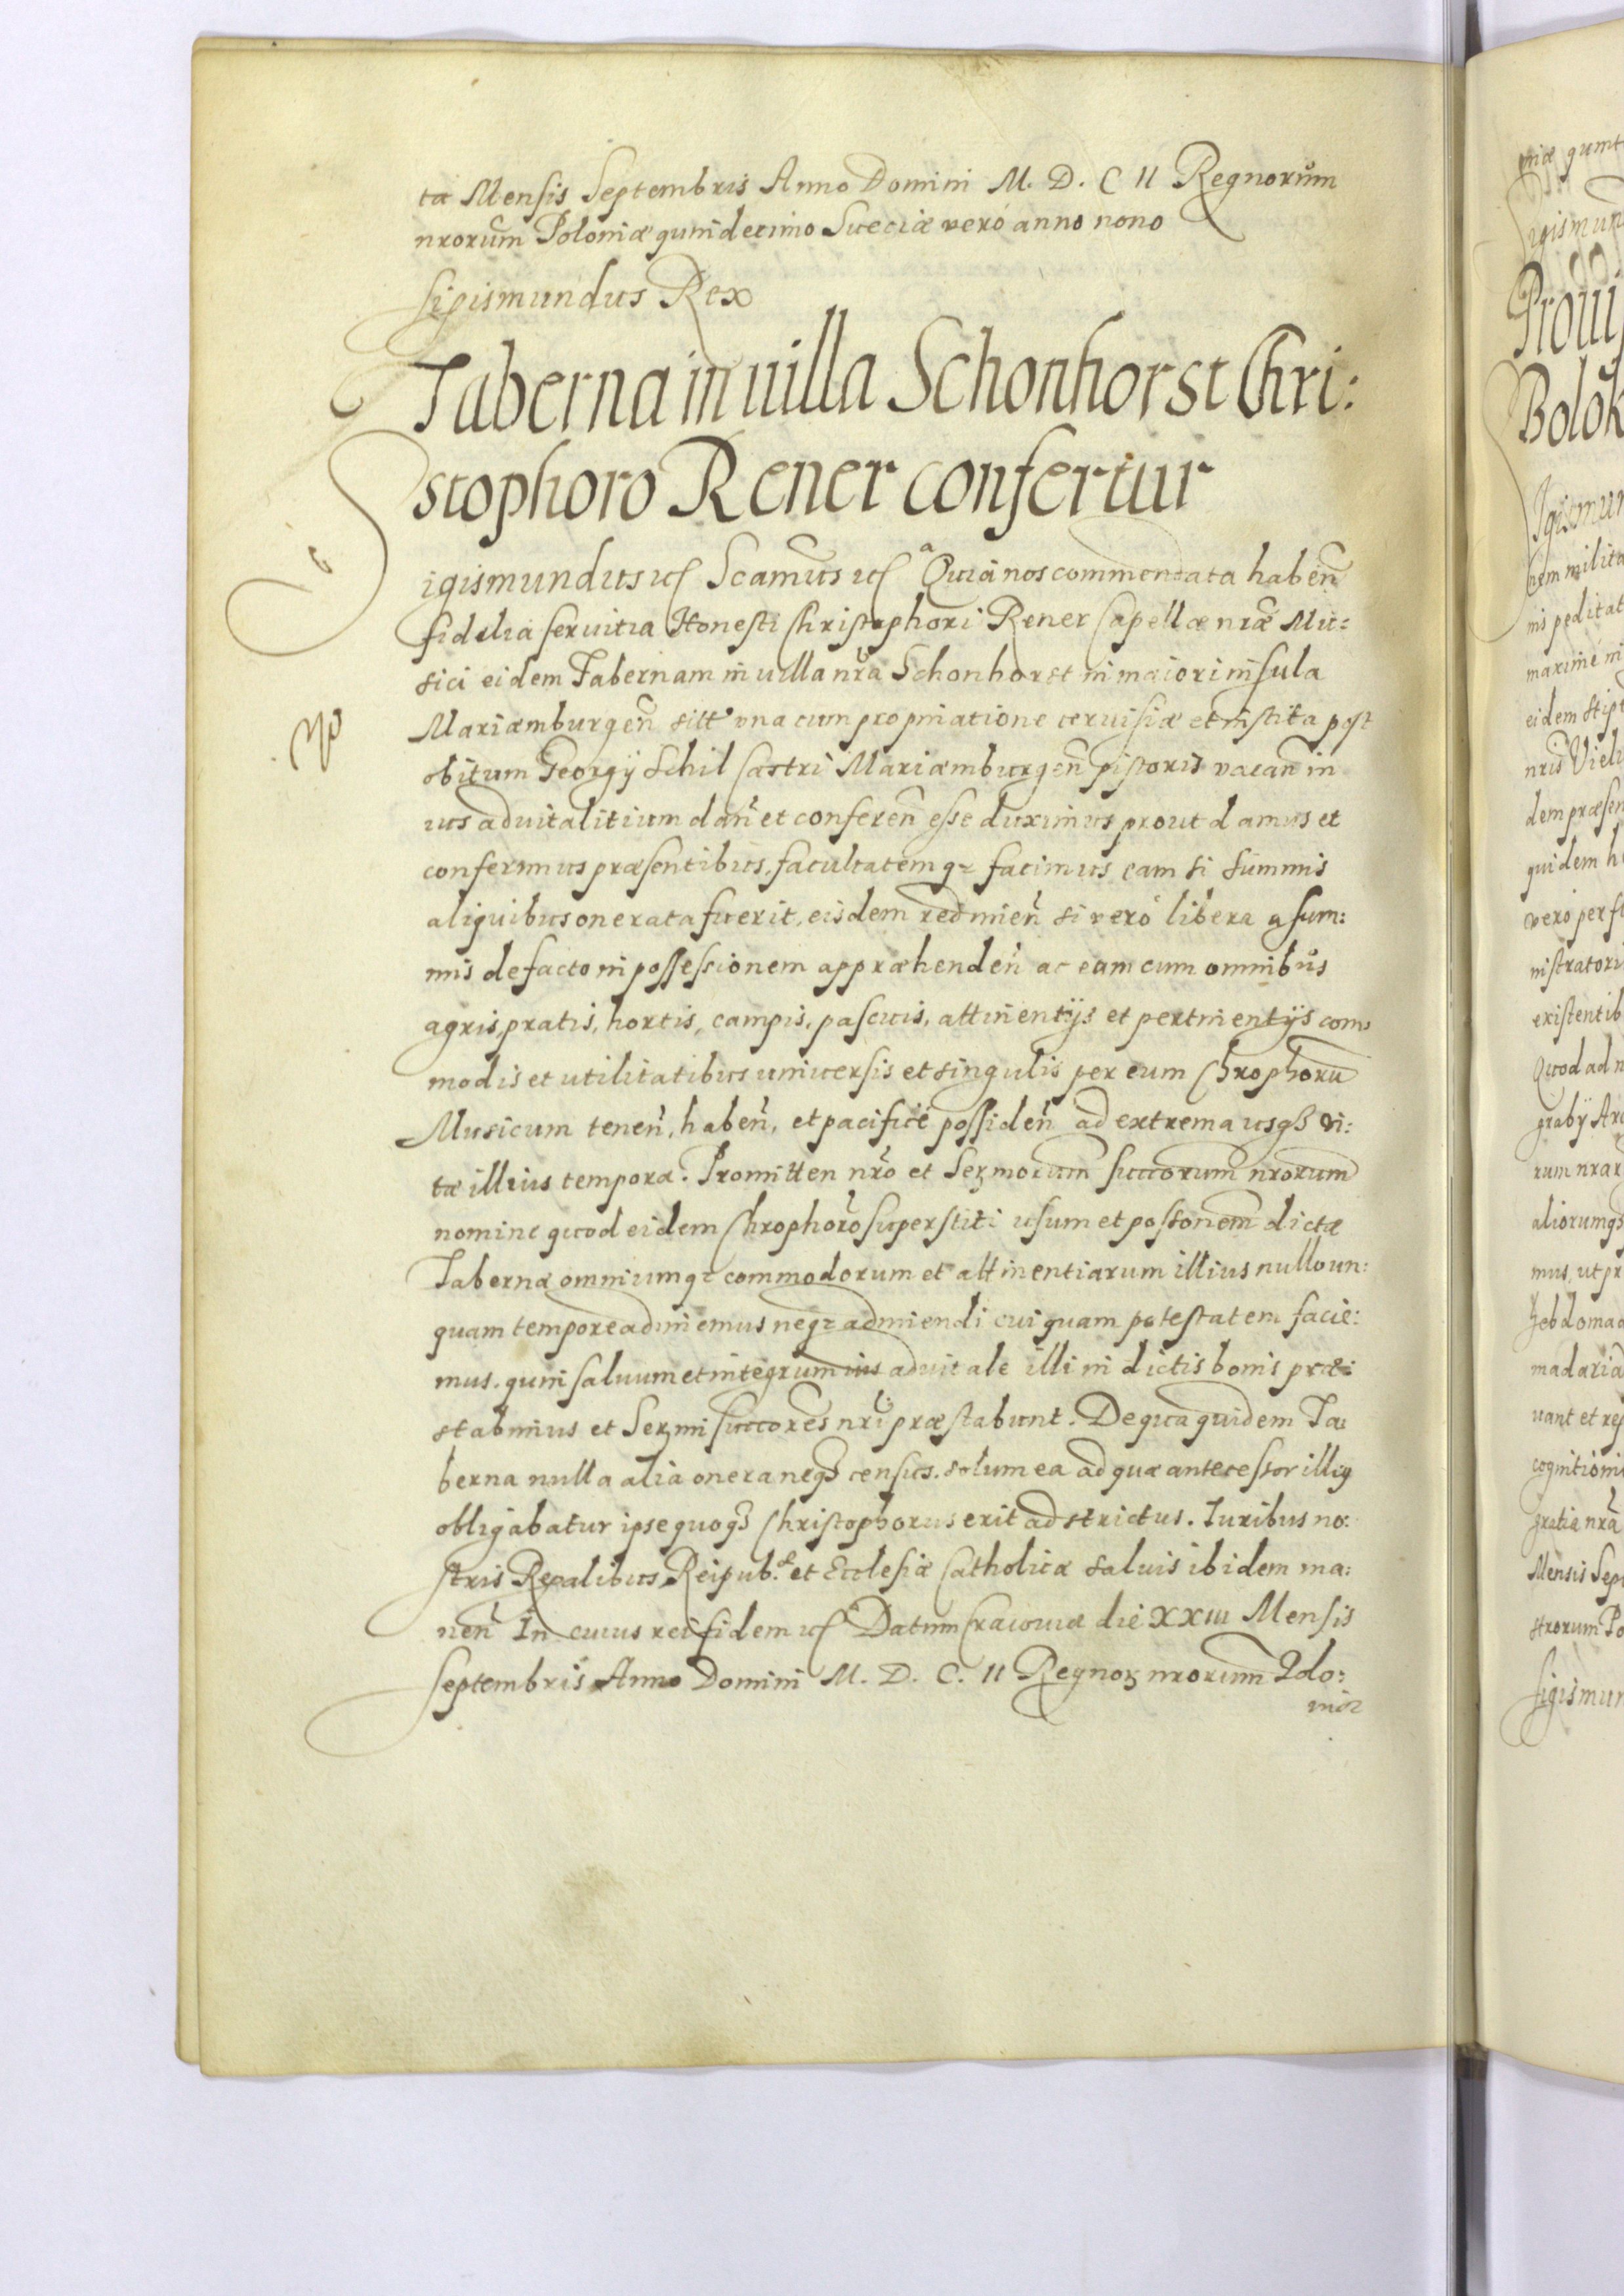 ta Mensis Septembris Anno Domini M. D. C II Regnorum
nrorum Poloniæ quindecimo Sueciæ veró anno nono
Sigismundus Rex
Taberna in uilla Schonhorst Chri:
stophoro Rener confertur
Sigismundus Scamus Quia nos commendata haben
fidelia seruitia Honesti Christophori Rener Capellæ nræ Mu:
sici eidem Tabernam in uilla nra Schonhorst in maiori insula
Mariæmburgen sitt vna cum propinatione ceruisiæ et post
obitum Georgÿ Schil Castri Mariæmburgen pistoris vacan in
ius aduitalitium dan et conferen esse duximus prout damus et
conferimus præsentibus, facultatemq facimus eam si summis
aliquibus onerata fuerit, eisdem redimien si veró libera a sum:
mis de facto in possessionem appræhenden ac eam cum omnibus
agris, pratis, hortis, campis, pascuis, attinentÿs et pertinentÿs com:
modis et utilitatibus uniuersis et singulis per eum Chrophoru
Musicum tenen, haben, et pacificé possiden ad extrema usq vi:
tæ illius tempora. Promitten nro et Sermorum succorum nrorum
nomine quod eidem Chrophoro superstiti usum et possonem dictæ
Tabernæ omniumq commodorum et attinentiarum illius nullo un:
quam tempore adimemus neq adimendi cuiquam potestatem facie:
mus. quin saluum et integrum ius aduitale illi in dictis bonis præ:
stabimus et Sermi succores nri præstabunt. De qua quidem Ta:
berna nulla alia onera neq census. solum ea ad quæ antecessor illius
obligabatur ipse quoq Christophorus erit adstrictus. Iuribus no:
stris Regalibus Reipub. et Ecclesiæ Catholicæ saluis ibidem ma:
nen In cuius rei fidem Datum Cracouiæ die XXIII Mensis
Septembris Anno Domini M. D. C. II Regnor nrorum Polo:
niæ